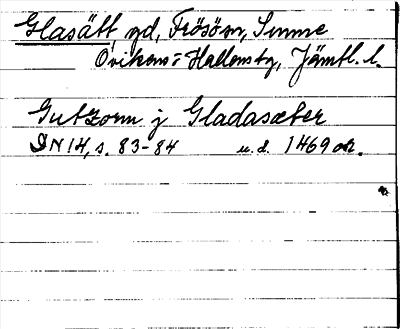 Glasätt, gd, Frösösn, Sunne
Ovikens- Hallens tg, Jämtl. l.
Gutzorm j Gladasæter
DN 14, s. 83-84 u.d. 1469 or.